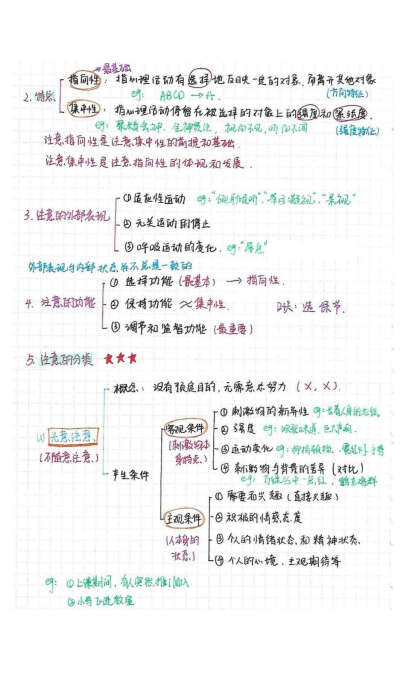 最基础
指向性：指心理活动有选择地反映一定的对象，而离开其他对象
2. 特点
eg: ABCD → A. (方向特征)
集中性：指心理活动停留在被选择的对象上的强度和紧张度.
eg: 聚精会神、全神贯注、视而不见，听而不闻 (强度特征)
注意指向性是注意集中性的前提和基础.
注意集中性是注意指向性的体现和发展.
① 适应性运动 eg:“侧耳倾听”“举目凝视”
3. 注意的外部表现
② 无关运动的停止
③ 呼吸运动的变化. eg:“屏息”
外部表现与内部状态并不总是一致的
① 选择功能 (最基本) → 指向性.
4. 注意的功能
② 保持功能 ≈ 集中性. 口诀：选保节.
③ 调节和监督功能 (最重要)
5. 注意的分类 ★★★
概念：没有预定目的，无需意志努力 (×, ×)
① 刺激物的新异性
(1) 无意注意 客观条件 ② 强度
(不随意注意) (刺激物本身特点) ③ 运动变化
④ 刺激物与背景的差异 (对比)
eg: 万绿丛中一点红，鹤立鸡群
产生条件
① 需要和兴趣 (直接兴趣)
主观条件 ② 积极的情感态度
(人本身的状态) ③ 个人的情绪状态和精神状态.
④ 个人的心境、主观期待等
eg: ① 上课期间，有人突然推门而入
② 小鸟飞进教室